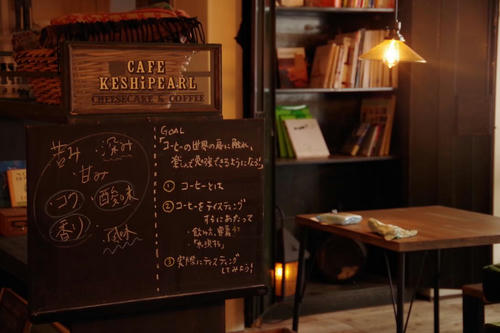 CAFE
KESHiPEARL
CHEESECAKE & COFFEE
苦み ・深み
甘み
・コク ・酸味
香り ・風味
GOAL
コーヒーの世界の扉に触れ、
楽しんで できるようになろう!
① コーヒーとは
② コーヒーをテイスティング
するにあたって
③ 実際にテイスティング
してみよう!